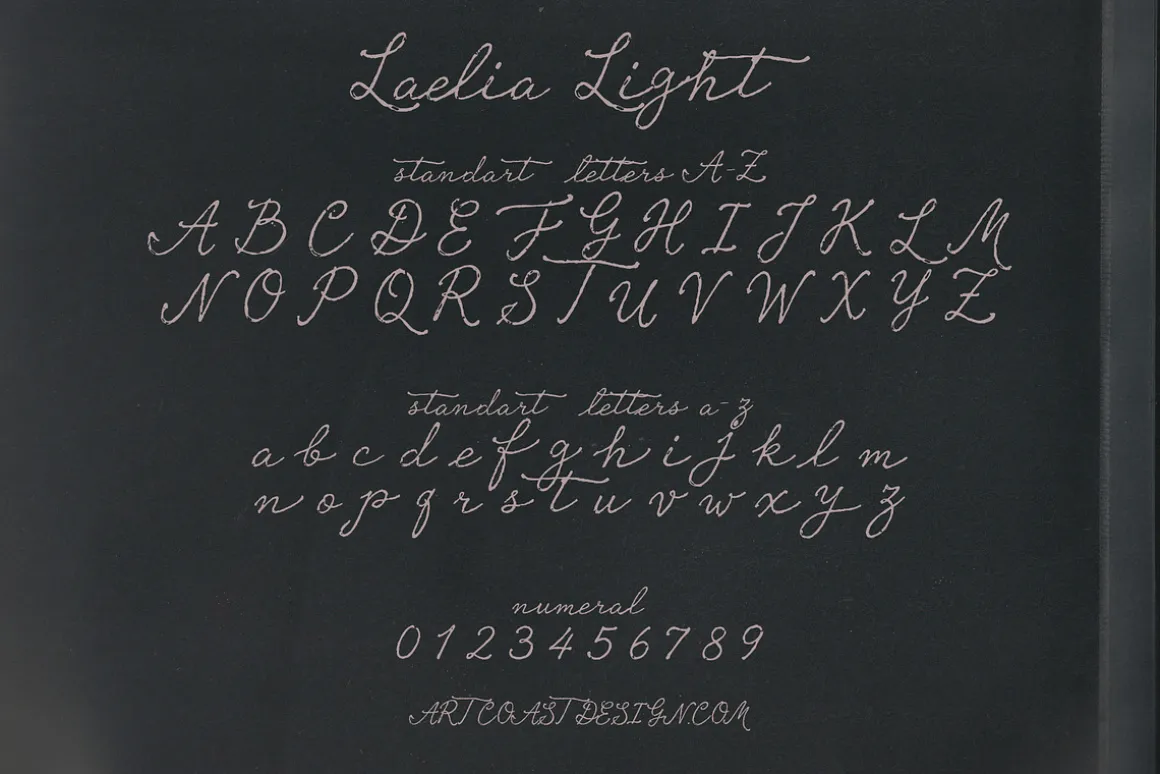 Laelia Light
standart letters A-Z
A B C D E F G H I J K L M
N O P Q R S T U V W X Y Z
standart letters a-z
a b c d e f g h i j k l m
n o p q r s t u v w x y z
numeral
0 1 2 3 4 5 6 7 8 9
ARTCOASTDESIGN.COM